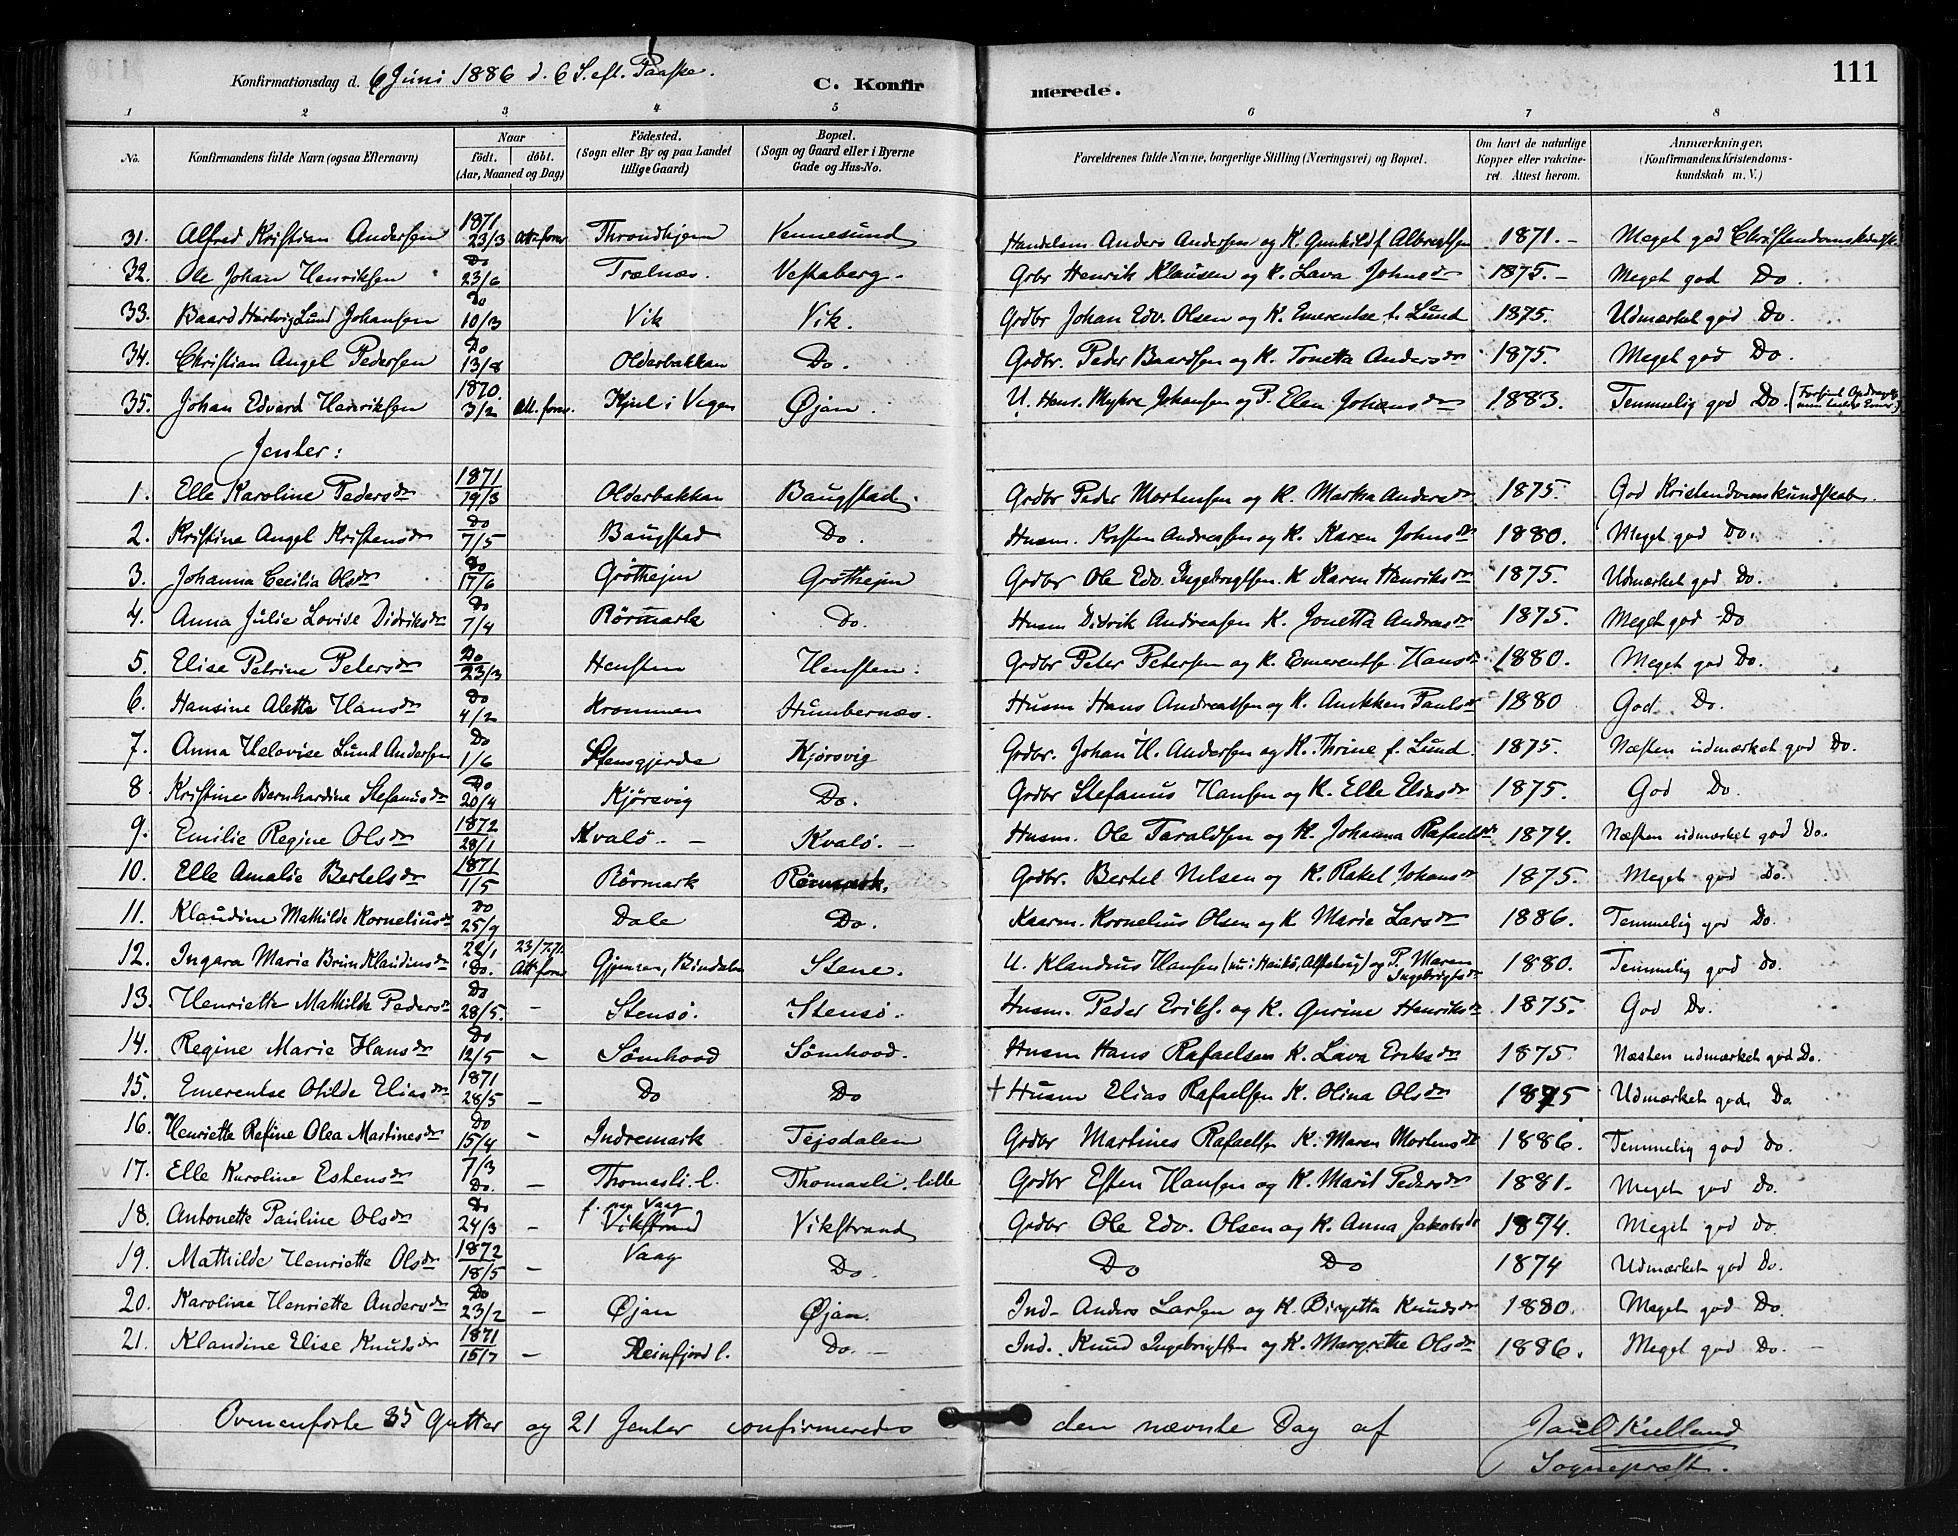 111
Konfirmationsdag d. 6 Juni 1886 d. 6 S. eft. Paaske.
C. Konfirmerede.
1 2 3 4 5 6 7 8
No. | Konfirmandens fulde Navn (ogsaa Efternavn) | Naar født. døbt. (Aar, Maaned og Dag) | Fødested. (Sogn eller By og paa Landet tillige Gaard) | Bopæl. (Sogn og Gaard eller i Byerne Gade og Hus-No. | Forældrenes fulde Navne, borgerlige Stilling (Næringsvei) og Bopæl. | Om havt de naturlige Kopper eller vakcineret. Attest herom. | Anmærkninger. (Konfirmandens Kristendomskundskab m. V.)
31. Alfred Kristian Andersen 1871 23/3 Att. forev Throndhjem Vennesund Handelsm Anders Andersen og K. Gunhild f Albregtsen 1871. - Meget god Christendomskundsk
32. Ole Johan Henriksen Do 23/6 Trælnæs. Vestaberg. Grbr Henrik Klausen og K. Lava Johnsdr 1875. - Meget god Do.
33. Baard Hartvig Lund Johansen Do 10/3 Vik Vik. Grdbr Johan Edv. Olsen og K. Emerentse f. Lund 1875. Udmærket god Do.
34. Christian Angel Pedersen Do 13/8 Olderbakkan Do. Grdbr. Peder Baardsen og K. Tonetta Andersdr 1875. Meget god Do.
35. Johan Edvard Henriksen 1870. 3/2 Att. forev. i Vegen Øjan. U. Henr. Myhre Johansen og P. Elen Johansdr 1883. Temmelig god Do.
Jenter:
1. Elle Karoline Pedersdr 1871 19/3 Olderbakkan Baugstad. Grdbr Peder Mortensen og K. Martha Andersdr 1875. God Kristendomskundskab.
2. Kristine Angel Kristensdr Do 7/5 Baugstad Do. Husm. Kristen Andreasen og K. Karen Johnsdr 1880. Meget god Do.
3. Johanna Cecilia Olsdr Do 17/6 Grøthejm Grøthejm Grdbr Ole Edv. Ingebrigtsen. K Karen Henriksdr 1875. Udmærket god Do.
4. Anna Julie Lovise Didriksdr Do 7/4 Rørmark Do. Husm Didrik Andreasen K. Jonetta Andreasdr 1875. Meget god Do
5. Elise Petrine Petersdr Do 23/3 Hensten Hensten. Grdbr Peter Petersen og K. Emerentse Hansdr 1880. Meget god Do.
6. Hansine Aletta Hansdr Do 4/2 Krommen Humbernæs. Husm Hans Andreassen og K. Anikken Paulsdr 1880 God Do.
7. Anna Helovise Lund Andersen Do 1/6 Stensgjerde Kjørsvig Grdbr. Johan H. Andersen og K. Thrine f. Lund. 1875. Næsten udmærket god Do.
8. Kristine Bernhardine Stefanusdr Do 20/4 Kjørsvig Do. Grdbr Stefanus Hansen og K. Elle Eliasdr 1875. God Do.
9. Emilie Regine Olsdr 1872 28/1 Kvalø. - Kvalø. - Husm. Ole Taraldsen og K. Johanna Rafaelsdr 1874. Næsten udmærket god Do.
10. Elle Amalie Bertelsdr 1871 1/5 Rørmark Rørmark. Grdbr. Bertel Nelsen og K. Rakel Johansdr 1875. Meget god Do.
11. Klaudine Mathilde Korneliusdr Do 25/9 Dale Do. Kaarm. Kornelius Olsen og K Marie Larsdr 1886. Temmelig god Do.
12. Ingara Marie Brun Klaudiusdr 22/1 Do. 23/7.71. Att. forev Bindalen Stene. U. Klaudius Hansen og P. Maren Ingebrigtsdr 1880. Temmelig god Do.
13. Henriette Mathilde Pedersdr Do 28/5. - Stensø. Stensø. Husm. Peder Eriks. og K. Gurine Henriksdr 1875. God Do.
14. Regine Marie Hansdr Do 12/5 - Sømhovd Sømhovd. Husm Hans Rafaelsen K. Lava Eriksdr 1875. Næsten udmærket god Do.
15. Emerentse Otilde Eliasdr 1871 28/5 - Do Do † Husm Elias Rafaelsen K. Olina Olsdr 1875 Udmærket god. Do
16. Henriette Refine Olea Martinesdr Do 15/4 - Indremark Tejsdalen Grdbr Martines Rafaels. K. Maren Mortensdr 1886. Temmelig god Do.
17. Elle Karoline Estensdr 7/3 Do. - Thomasli. l. Thomasli. lille Grdbr Esten Hansen og K. Marit Pedersdr 1881. Meget god Do.
18. Antonette Pauline Olsdr Do 24/3 - Vaag Vikstrand Vikstrand Grdbr Ole Edv. Olsen og K. Anna Jakobsdr 1874. Meget god Do
19. Mathilde Henriette Olsdr 1872 18/5 - Vaag Do. Do Do 1874 Udmærket god Do.
20. Karoline Henriette Andersdr Do 23/2 - Øjan Øjan. Ind- Anders Larsen og K. Birgitta Knudsdr 1880. Meget god Do.
21. Klaudine Elise Knudsdr 1871 15/7 - Reinfjord l. Do. - Ind. Knud Ingebrigtsen og K. Margrethe Olsdr 1886. Meget god Do. -
Ovenenførte 35 Gutter og 21 Jenter confirmeredes den nævnte Dag af Paul Kielland
Sognepræst.